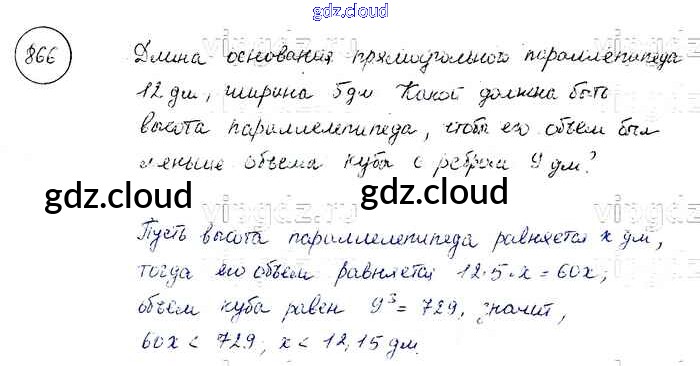 gdz.cloud
866
Длина основания прямоугольного параллепипеда
12 дм, ширина 5 дм Какой должна быть
высота параллелепипеда, чтобы его объем был
меньше объема куба с ребром 9 дм?
gdz.cloud gdz.cloud
Пусть высота параллелепипеда равняется x дм,
тогда его объем равняется 12·5·x = 60x;
объем куба равен 9³ = 729, значит,
60x < 729; x < 12,15 дм.